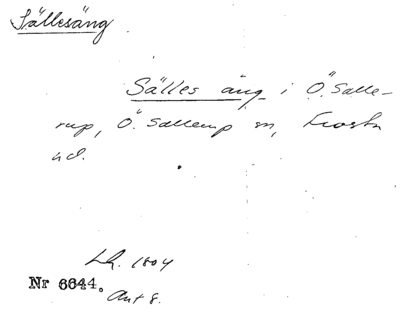 Sällesäng
Sälles äng i Ö. Salle-
rup, Ö. Sallerup sn, Frosta
hd.
Lh. 1804
Nr 6644.
Akt 8.